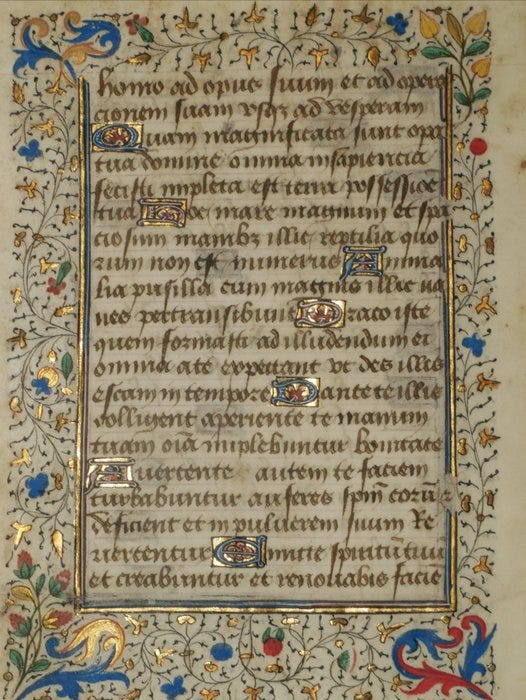 homo ad opus suum et ad opera
cionem suam vsqꝫ ad vesperam
Quam magnificata sunt opa
tua domine omnia in sapiencia
fecisti impleta est terra possessioe
tua Hoc mare magnum et spa
ciosum manibꝫ illic reptilia quo
rum non est numerus Anima
lia pusilla cum magnis illic na
ues pertransibunt Draco iste
quem formasti ad illudendum ei
omnia a te expectant vt des illis
escam in tempore Dante te illis
colligent aperiente te manum
tuam oīa implebuntur bonitate
Auertente autem te faciem
turbabuntur auferes spm̄ eorū
deficient et in puluerem suum Re
uertentur Emitte spiritū tuū
et creabuntur et renouabis facie